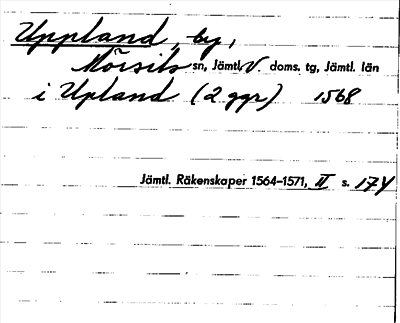 Uppland, by,
Mörsils sn, Jämtl. V. doms. tg, Jämtl. län
i Upland (2 ggr) 1568
Jämtl. Räkenskaper 1564–1571, II s. 174